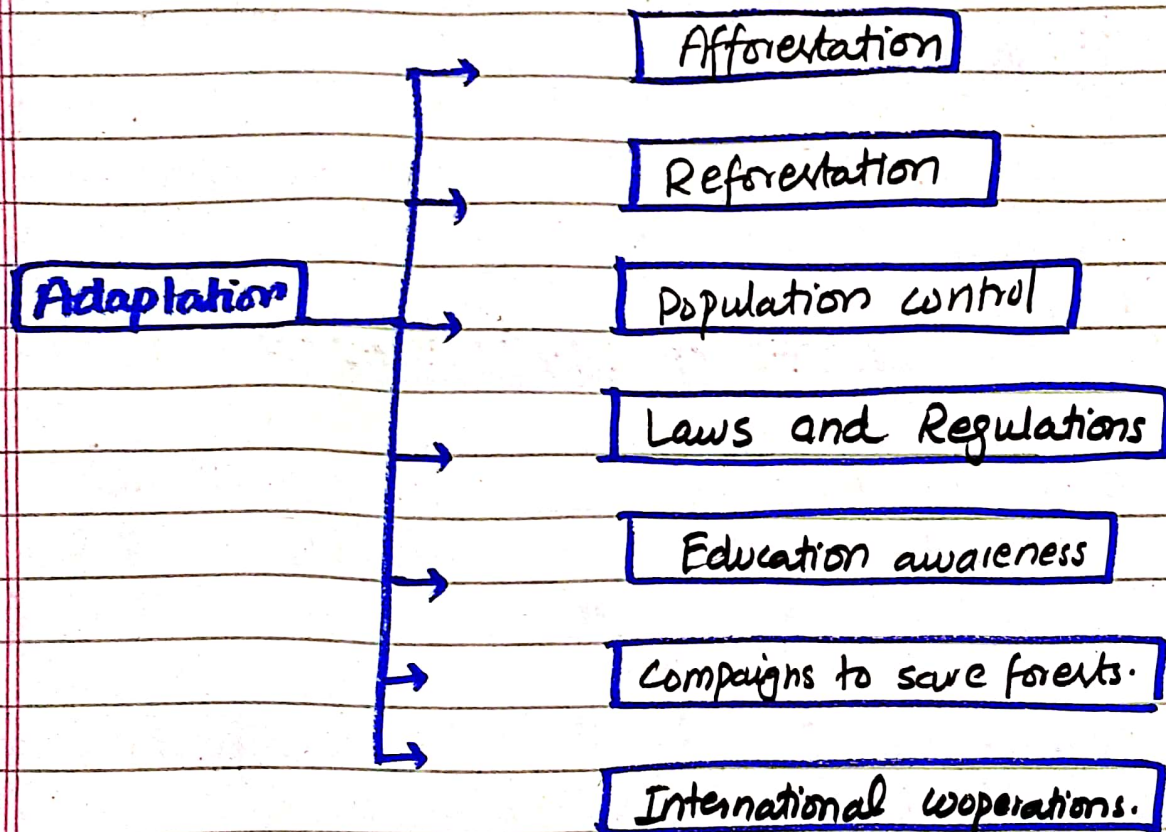 Afforestation
Reforestation
Adaptation
Population control
Laws and Regulations
Education awareness
Compaigns to save forests.
International cooperations.